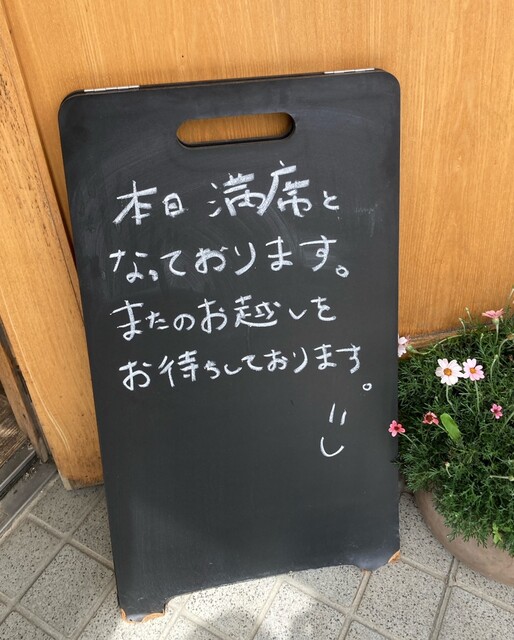 本日 満席と
なっております。
またのお越しを
お待ちしております。